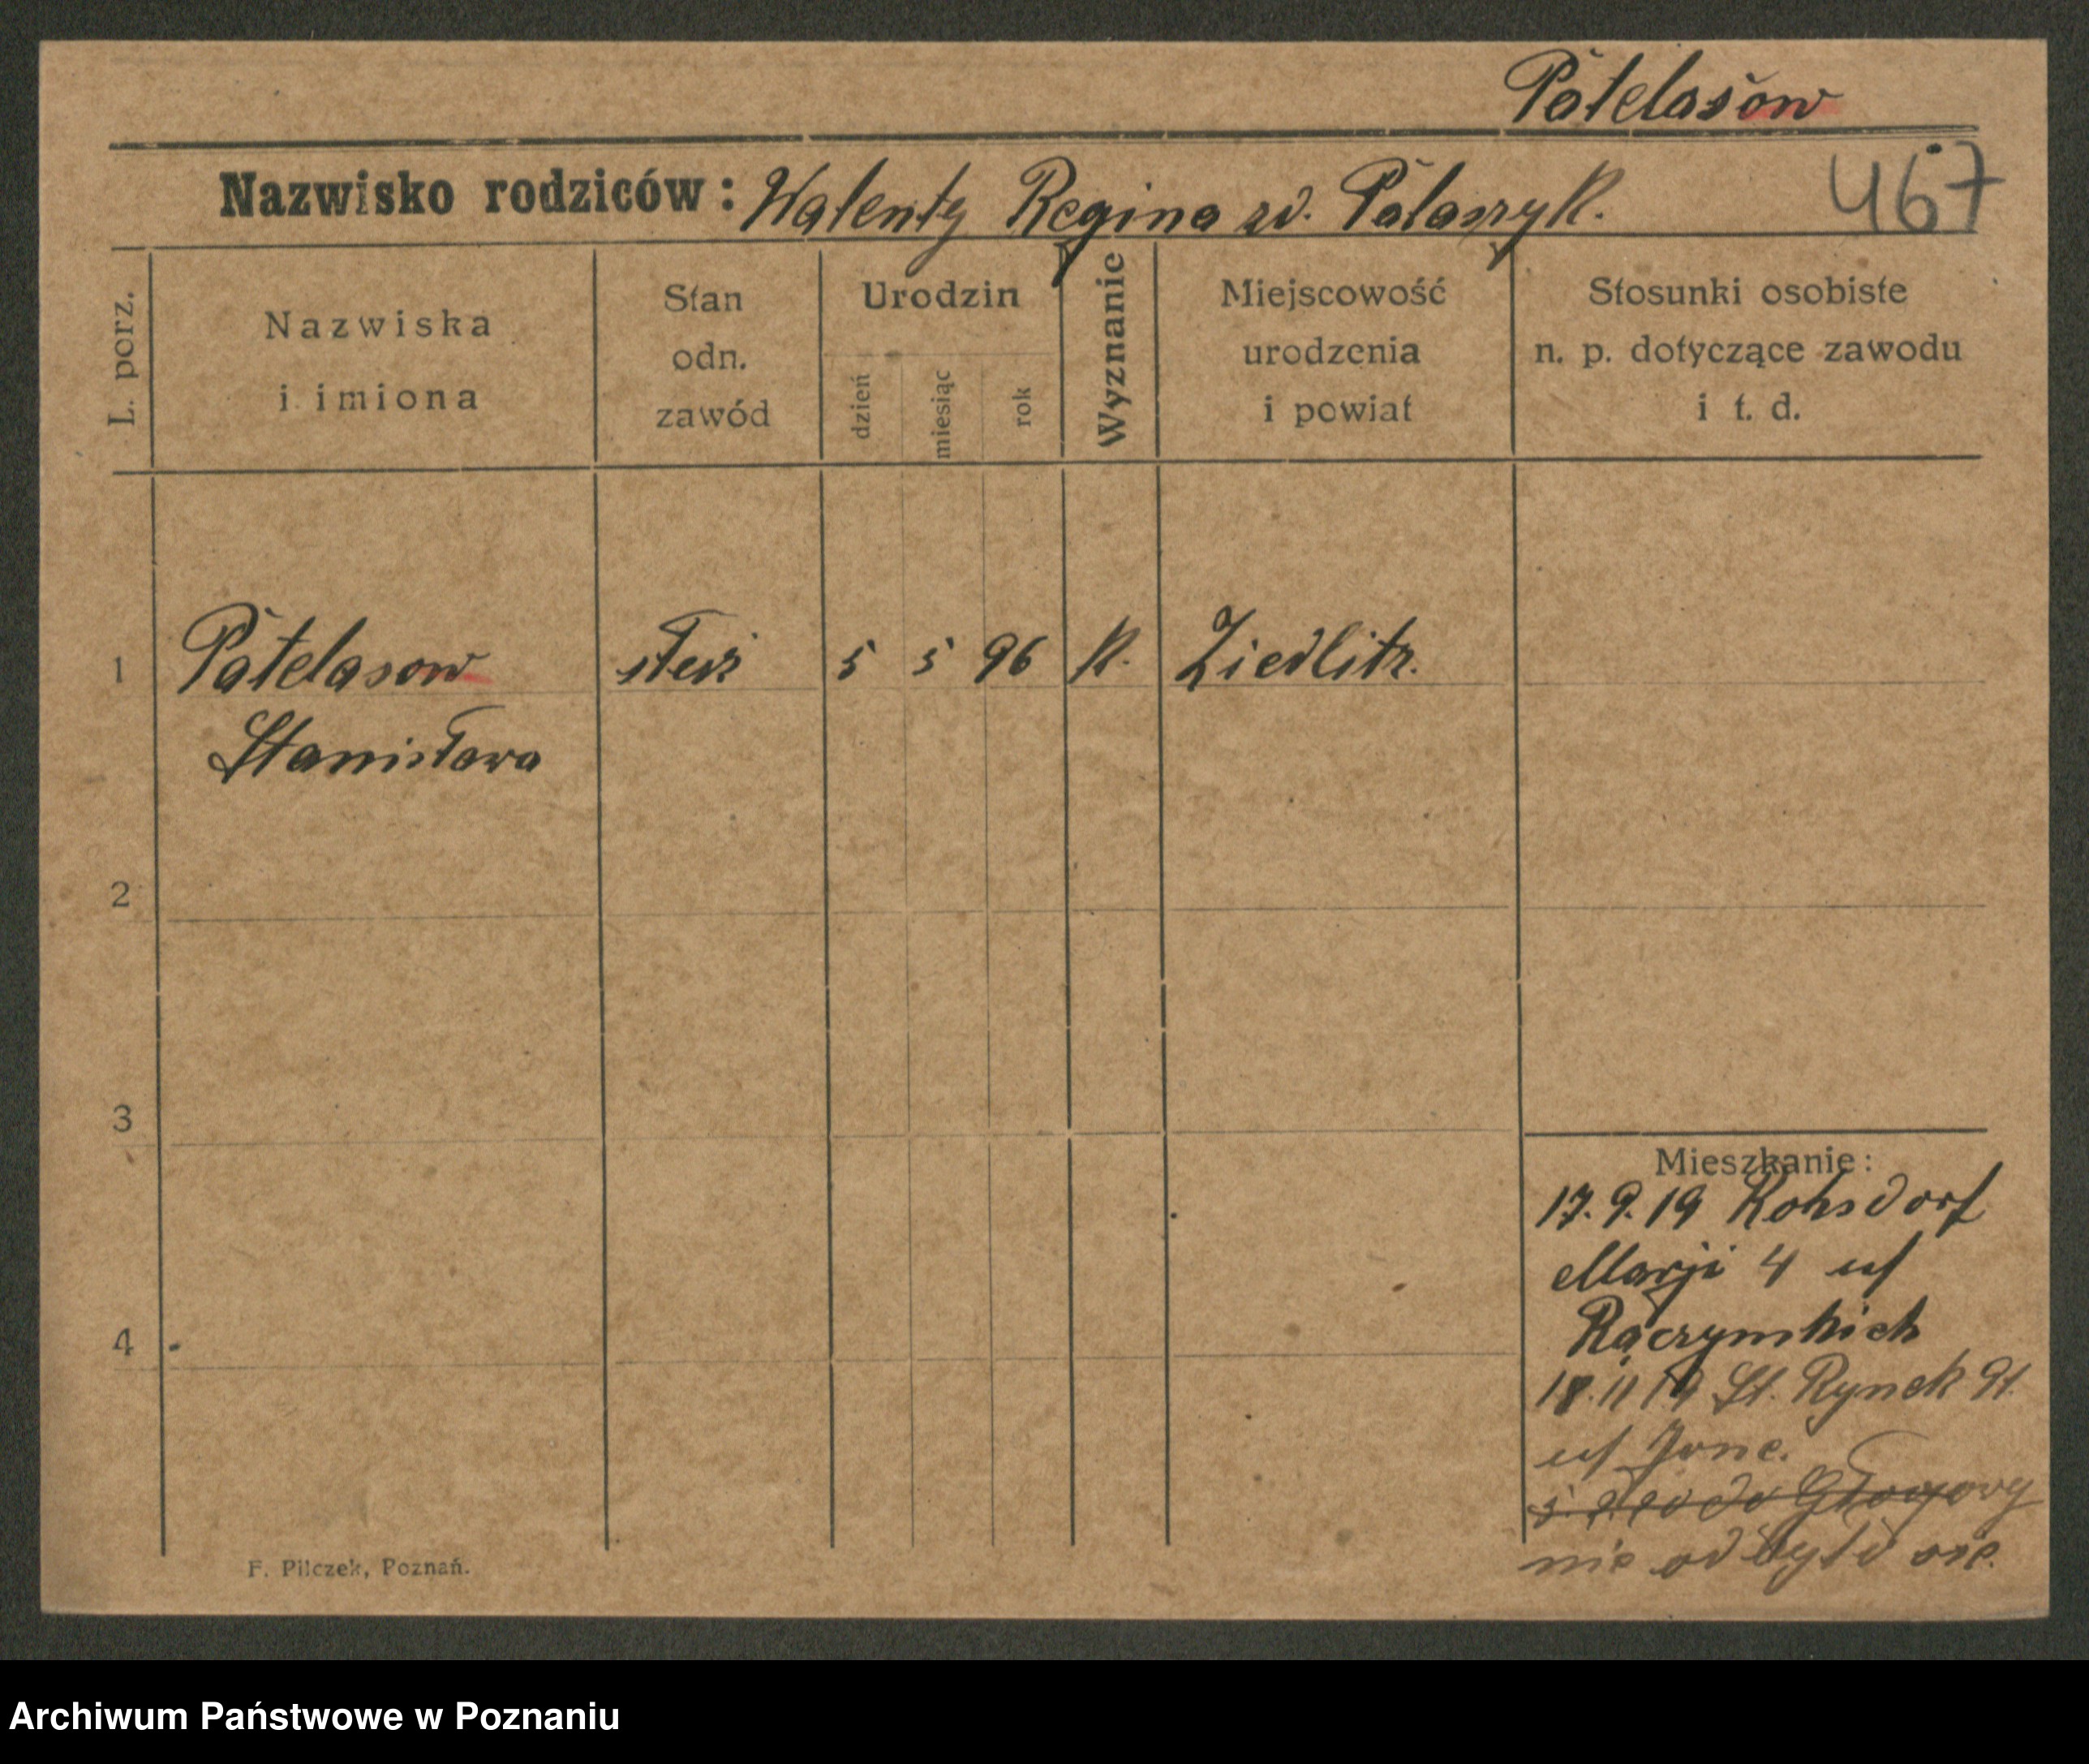 Patelasow
Nazwisko rodziców: Walenty Regina zd. Palaszyk.
467
L. porz.
Nazwiska
i imiona
Stan
odn.
zawód
Urodzin
dzień
miesiąc
rok
Wyznanie
Miejscowość
urodzenia
i powiat
Stosunki osobiste
n. p. dotyczące zawodu
i t. d.
1 Patelasow 5 5 96 K. Ziedlitz.
Stanisława
2
3
4
Mieszkanie:
17.9.19 Rohsdorf
Marji 4
18.11.19 St. Rynek 91.
do Głogowy
nie odbyło się.
F. Pilczek, Poznań.
Archiwum Państwowe w Poznaniu